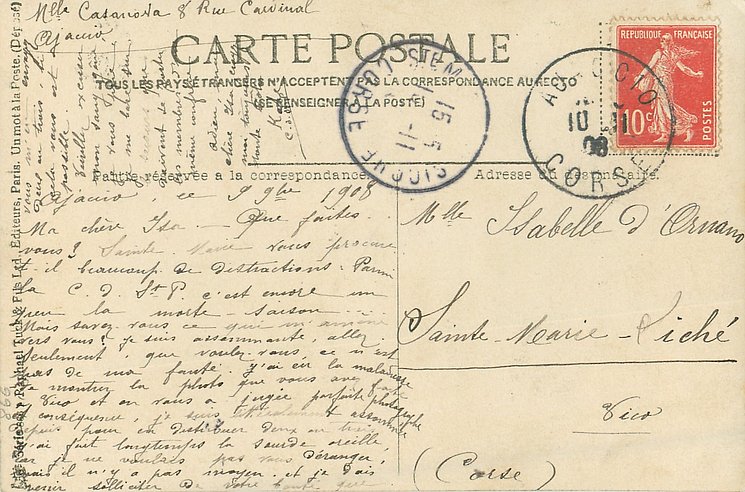 Mlle Casanova 8 Rue Cardinal
Ajaccio
CARTE POSTALE
TOUS LES PAYS ÉTRANGERS N'ACCEPTENT PAS LA CORRESPONDANCE AU RECTO
(SE RENSEIGNER À LA POSTE)
RÉPUBLIQUE FRANÇAISE
10c
POSTES
AJACCIO
10 11
08
CORSE
STE M
SICCHÉ
CORSE
15 5
11
Partie réservée à la correspondance
Adresse du destinataire
Ajaccio ce 9 9bre 1908
Ma chère Isa. Que faites
vous? Sainte Marie vous procure
t. il beaucoup de distractions. Parmi
la C. d. St P. c'est encore un
peu la morte-saison...
Mais savez vous ce qui m'amène
vers vous? je suis assommante, allez.
Seulement, que voulez vous, ce n'est
pas de ma faute. J'ai eu la maladresse
de montrer la photo que vous avez faite
à Vico et on vous a jugée parfaite photographe
en conséquence, je suis
depuis pour en distribuer deux ou trois
j'ai fait longtemps la sourde oreille,
car je ne voulais pas vous déranger,
mais il n'y a pas moyen. et je dois
venir solliciter de votre bonté que
vous m'en
Deux ou trois,
cela vous est
possible.
Veuillez excuser
mon sans gêne
adieu,
chère Isa
Mlle Isabelle d'Ornano
Sainte-Marie-Siché
Vico
(Corse)
Raphael Tuck & Fils Ltd., Éditeurs, Paris. Un mot à la Poste. (Déposé)